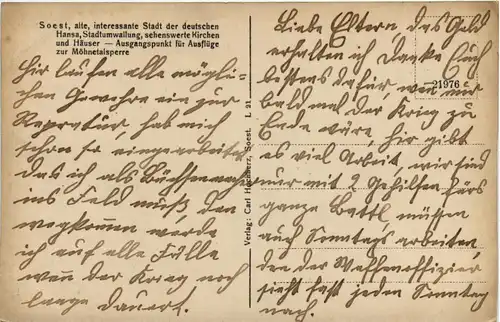 Soest, alte, interessante Stadt der deutschen
Hansa, Stadtumwallung, sehenswerte Kirchen
und Häuser — Ausgangspunkt für Ausflüge
zur Möhnetalsperre
hir laufen alle mögli-
chen Gewehre ein zur
Repratur, hab mich
schon so eingearbeitet
das ich als Büchsenmacher
ins Feld muß, den
wegkommen werde
ich auf alle Fälle
wen der Krieg noch
lange dauert.
Verlag: Carl Hochherz, Soest. L 21
21976
Liebe Eltern das Geld
erhalten ich Danke Euch
bestens dafür wen nur
bald mal der Krieg zu
Ende wäre, hir gibt
es viel Arbeit, wir sind
nur mit 2 Gehilfen fürs
ganze Battl, müßen
auch Sonntags arbeiten,
den der Waffenoffizier
sieht fast jeden Sonntag
nach.